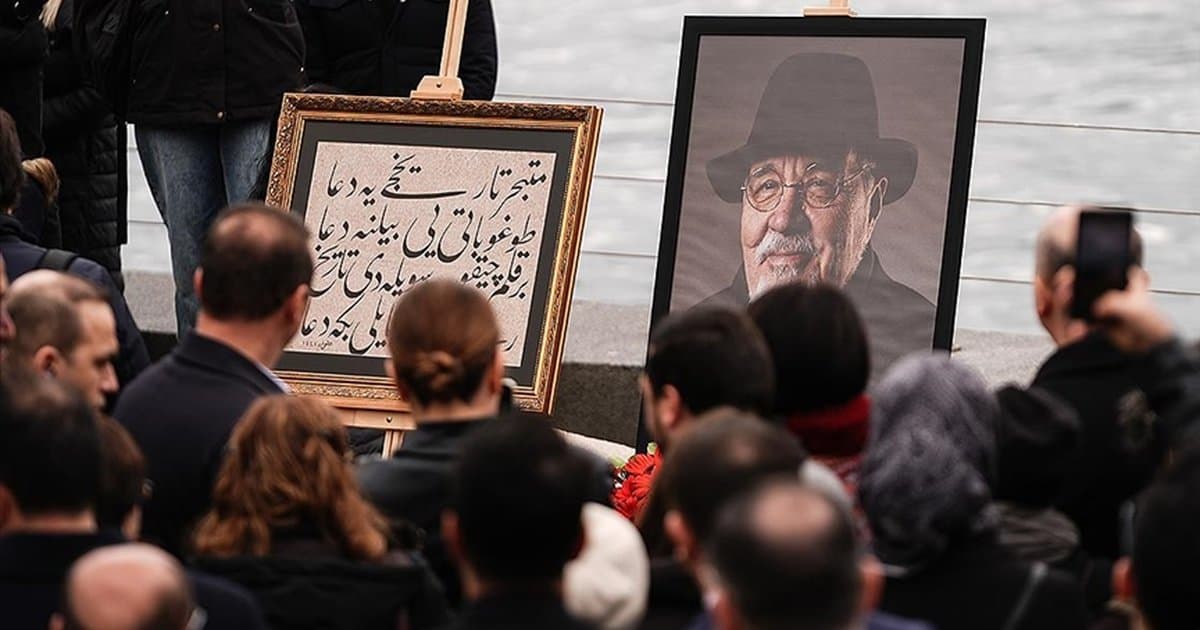 متبحر تاریخجی یه دعا
طوغو باتی یی بیلنه دعا
بر قلم سویله دی تاریخ
یلی بكه دعا